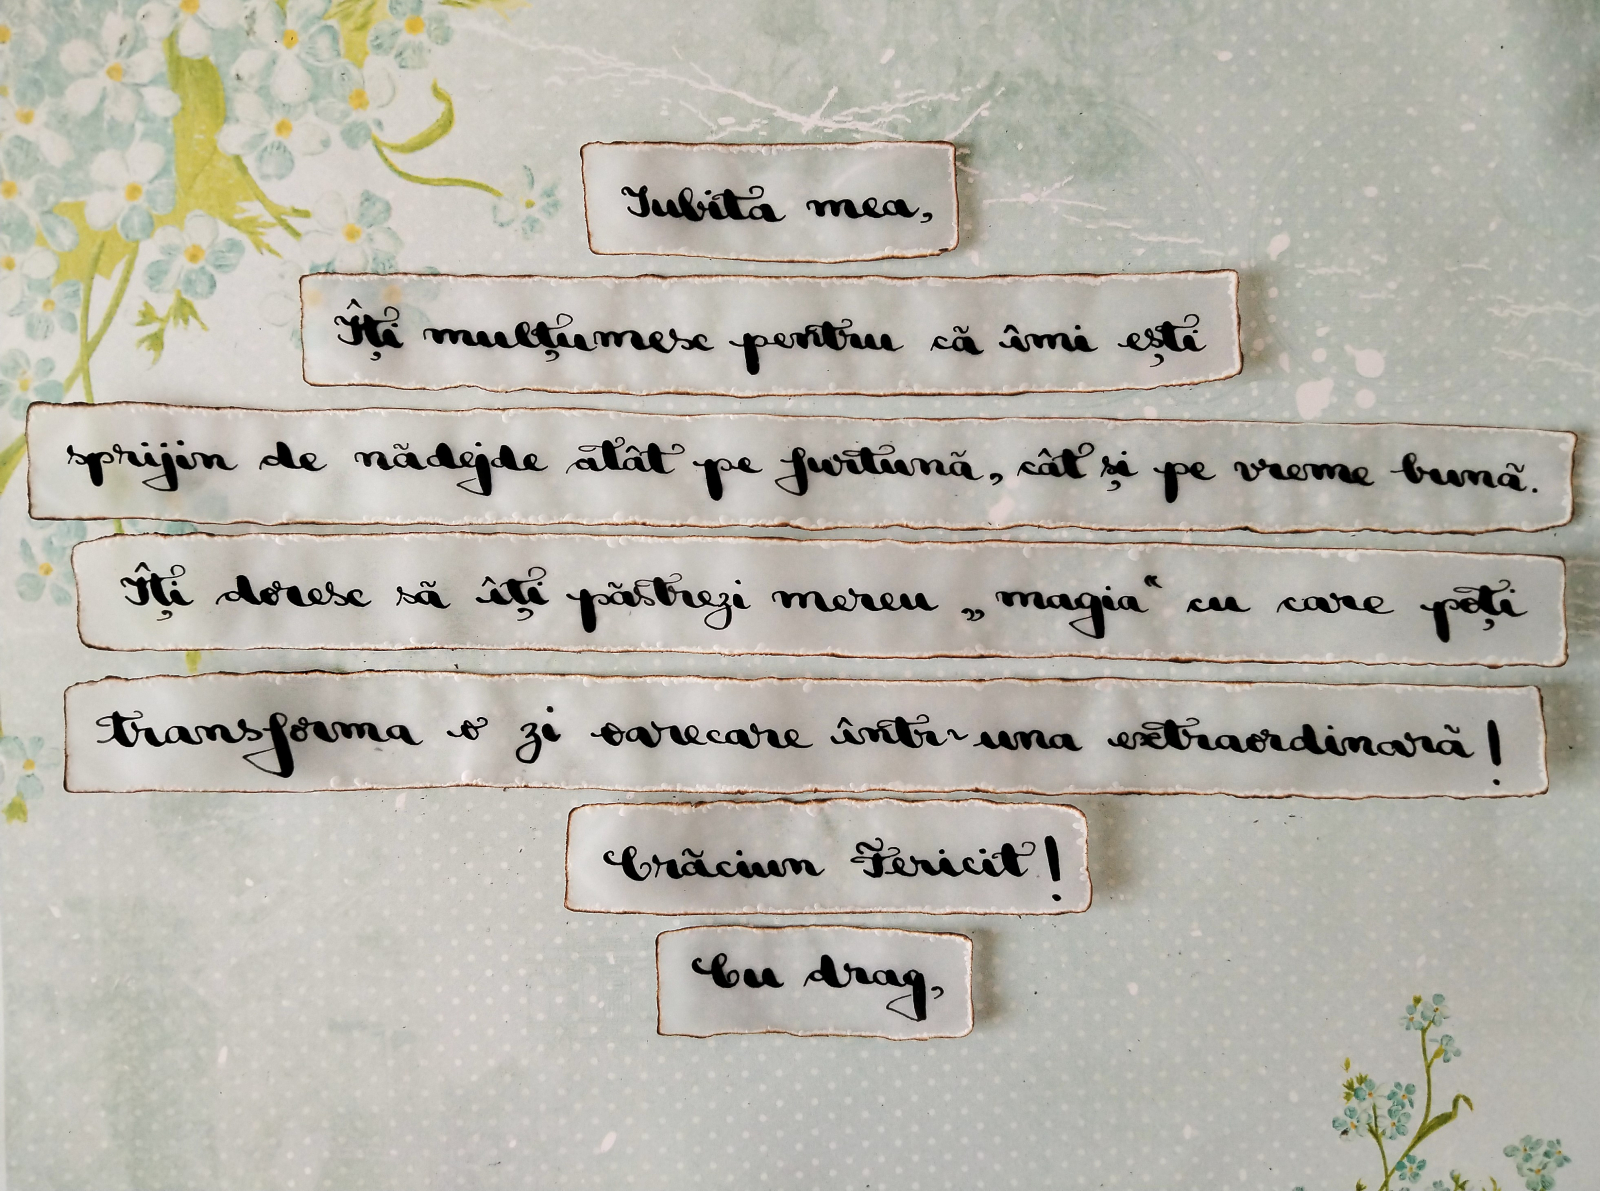 Iubita mea,
Îți mulțumesc pentru că îmi ești
sprijin de nădejde atât pe furtună, cât și pe vreme bună.
Îți doresc să îți păstrezi mereu „magia“ cu care poți
transforma o zi oarecare într-una extraordinară!
Crăciun Fericit!
Cu drag,